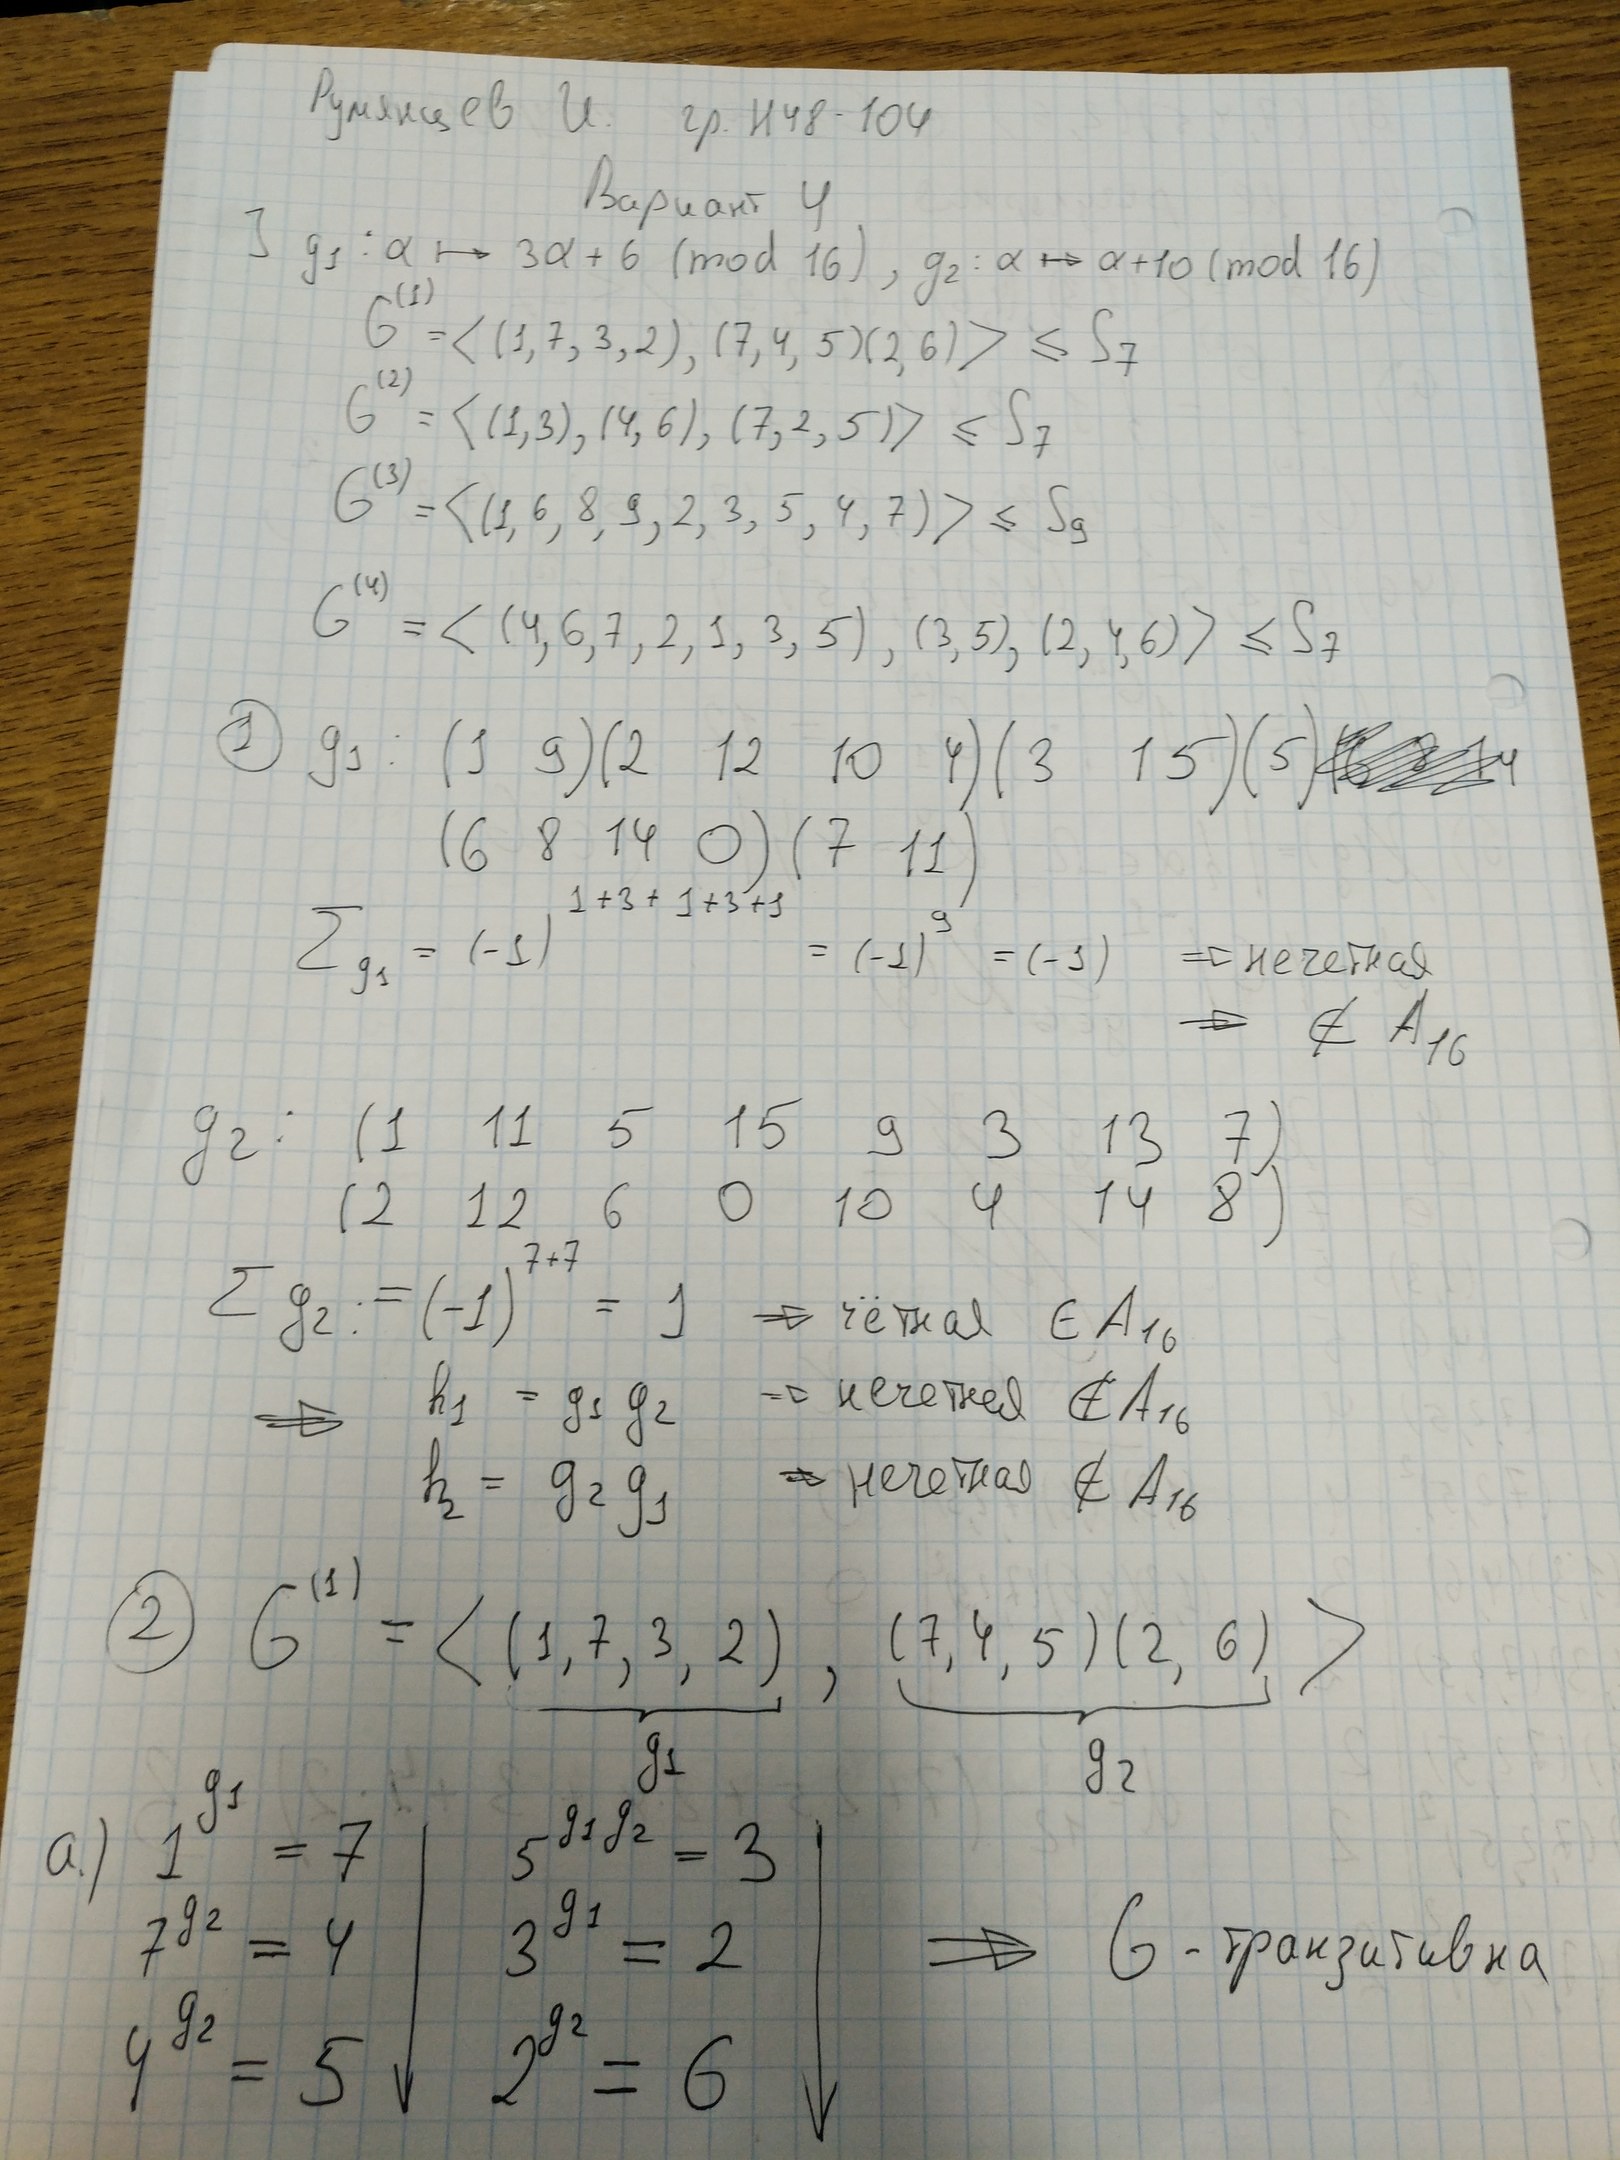 Румянцев И. гр. Н48-104
Вариант 4
] g1 : α ↦ 3α + 6 (mod 16), g2 : α ↦ α+10 (mod 16)
G^(1) = <(1,7,3,2), (7,4,5)(2,6)> ≤ S7
G^(2) = <(1,3), (4,6), (7,2,5)> ≤ S7
G^(3) = <(1,6,8,9,2,3,5,4,7)> ≤ S9
G^(4) = <(4,6,7,2,1,3,5), (3,5), (2,4,6)> ≤ S7
① g1 : (1 9)(2 12 10 4)(3 15)(5)
(6 8 14 0)(7 11)
Σg1 = (-1)^1+3+1+3+1 = (-1)^9 = (-1) ⇒ нечетная
⇒ ∉ A16
g2 : (1 11 5 15 9 3 13 7)
(2 12 6 0 10 4 14 8)
Σg2 := (-1)^7+7 = 1 ⇒ чётная ∈ A16
⇒ h1 = g1 g2 ⇒ нечетная ∉ A16
h2 = g2 g1 ⇒ нечетная ∉ A16
② G^(1) = <(1,7,3,2), (7,4,5)(2,6)>
g1 g2
а.) 1^g1 = 7 5^g1g2 = 3
7^g2 = 4 3^g1 = 2 ⇒ G - транзитивна
4^g2 = 5 2^g2 = 6